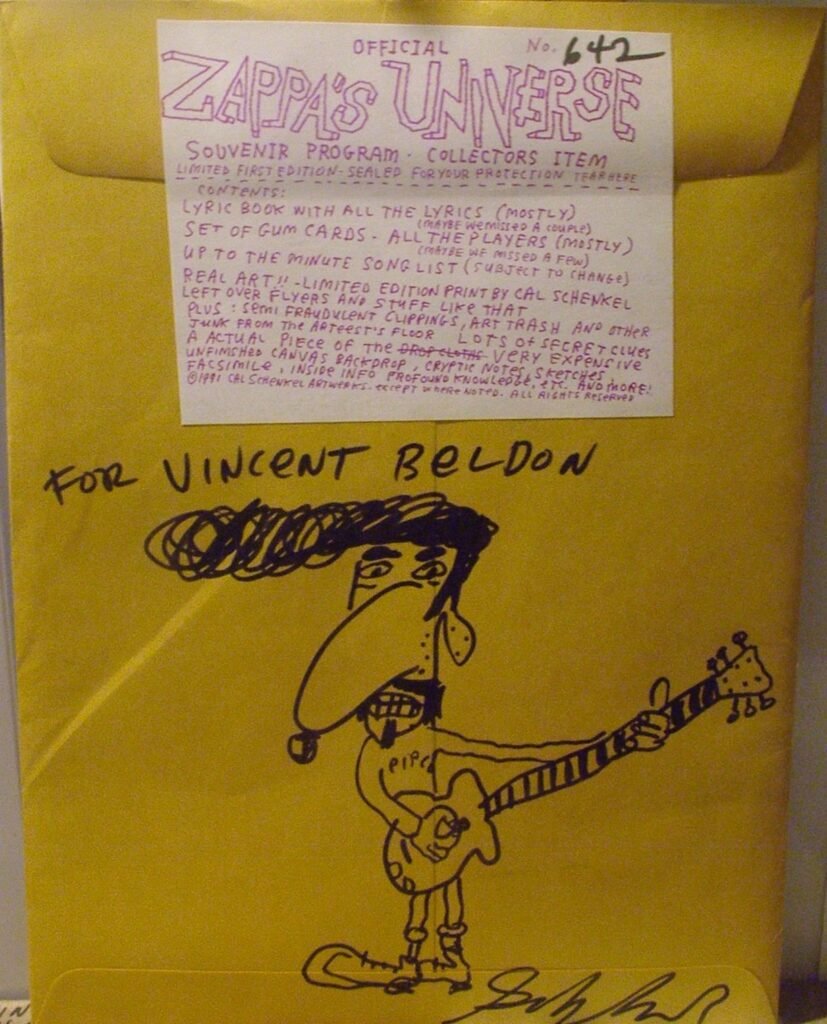 OFFICIAL No. 642
ZAPPA'S UNIVERSE
SOUVENIR PROGRAM - COLLECTORS ITEM
LIMITED FIRST EDITION - SEALED FOR YOUR PROTECTION TEAR HERE
CONTENTS:
LYRIC BOOK WITH ALL THE LYRICS (MOSTLY)
(MAYBE WE MISSED A COUPLE)
SET OF GUM CARDS - ALL THE PLAYERS (MOSTLY)
(MAYBE WE MISSED A FEW)
UP TO THE MINUTE SONG LIST (SUBJECT TO CHANGE)
REAL ART!! - LIMITED EDITION PRINT BY CAL SCHENKEL
LEFT OVER FLYERS AND STUFF LIKE THAT
PLUS: SEMI FRAUDULENT CLIPPINGS, ART TRASH AND OTHER
JUNK FROM THE ARTEEST'S FLOOR LOTS OF SECRET CLUES
A ACTUAL PIECE OF THE DROP CLOTHS VERY EXPENSIVE
UNFINISHED CANVAS BACKDROP, CRYPTIC NOTES, SKETCHES
FACSIMILE, INSIDE INFO PROFOUND KNOWLEDGE, ETC. AND MORE!
©1991 CAL SCHENKEL ARTWERKS. EXCEPT WHERE NOTED. ALL RIGHTS RESERVED
FOR VINCENT BELDON
PIPC
IN